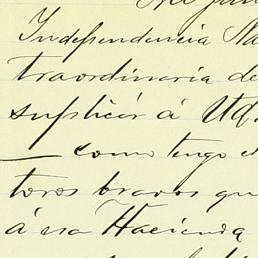 Independencia Na
traordinaria de
suplicár á Ud.
— como tengo e
toros bravos qu
á esa Hacienda